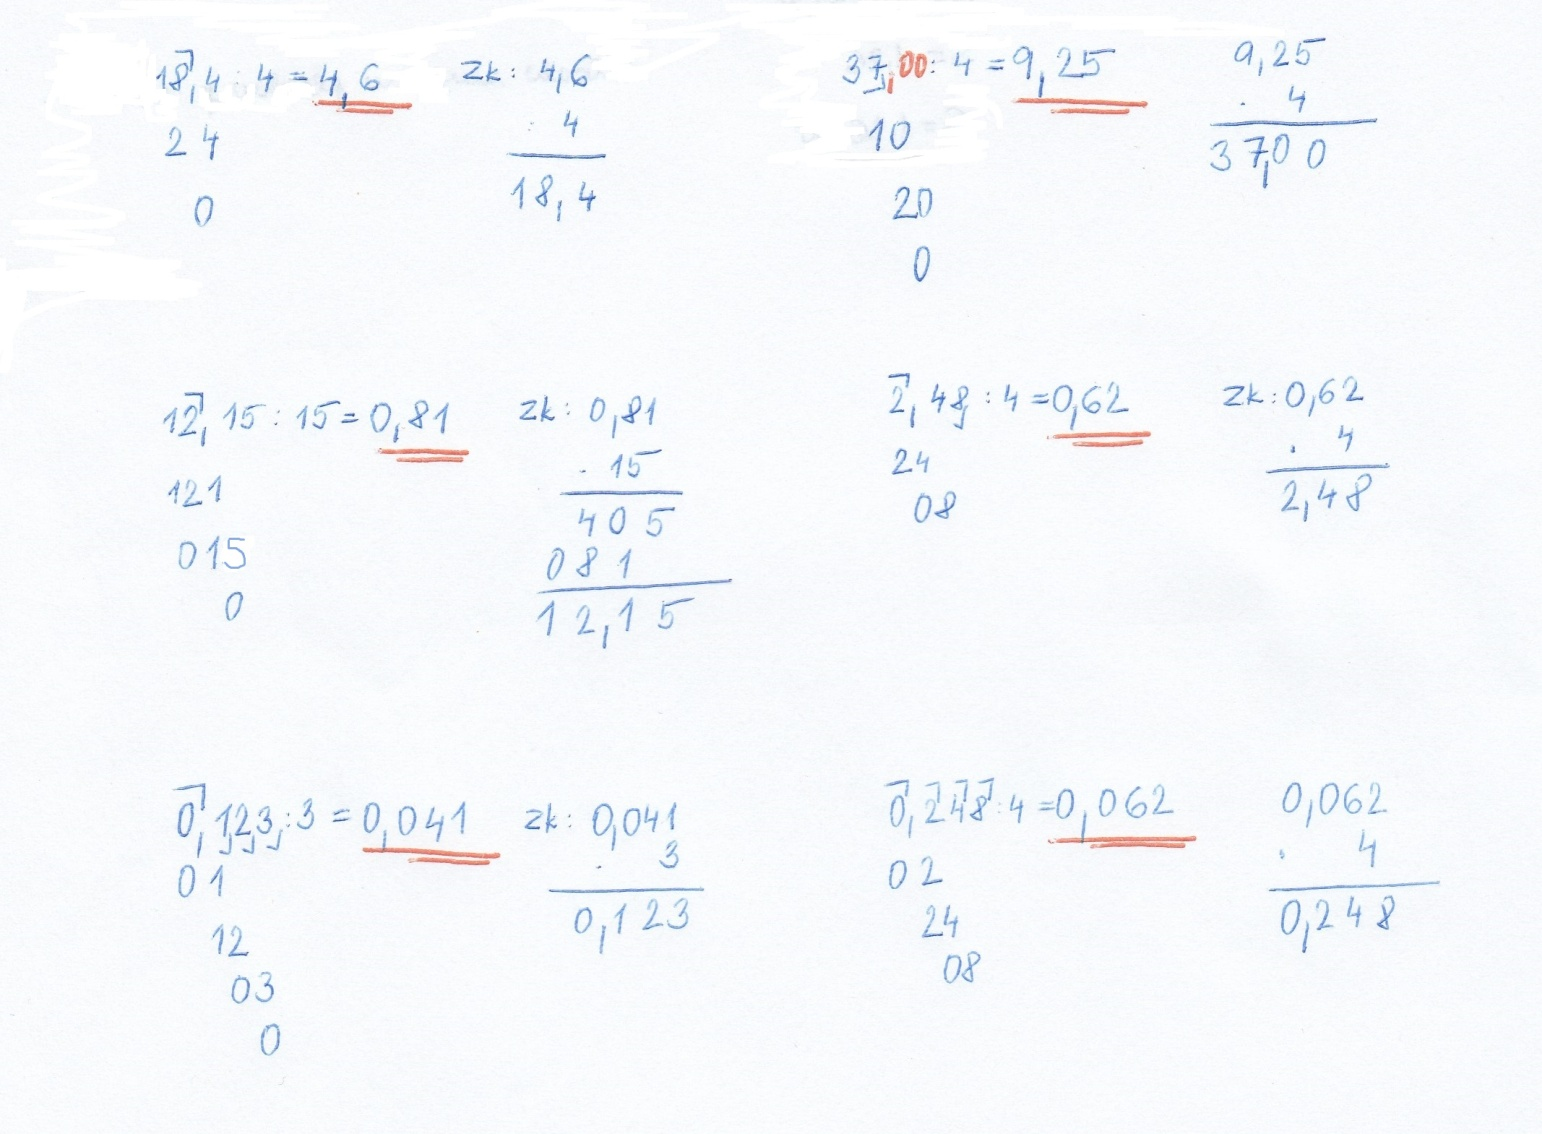 18,4 : 4 = 4,6
24
0
zk: 4,6
. 4
18,4
37,00 : 4 = 9,25
10
20
0
9,25
. 4
37,00
12,15 : 15 = 0,81
121
015
0
zk: 0,81
. 15
405
081
12,15
2,48 : 4 = 0,62
24
08
zk: 0,62
. 4
2,48
0,123 : 3 = 0,041
01
12
03
0
zk: 0,041
. 3
0,123
0,248 : 4 = 0,062
02
24
08
0,062
. 4
0,248